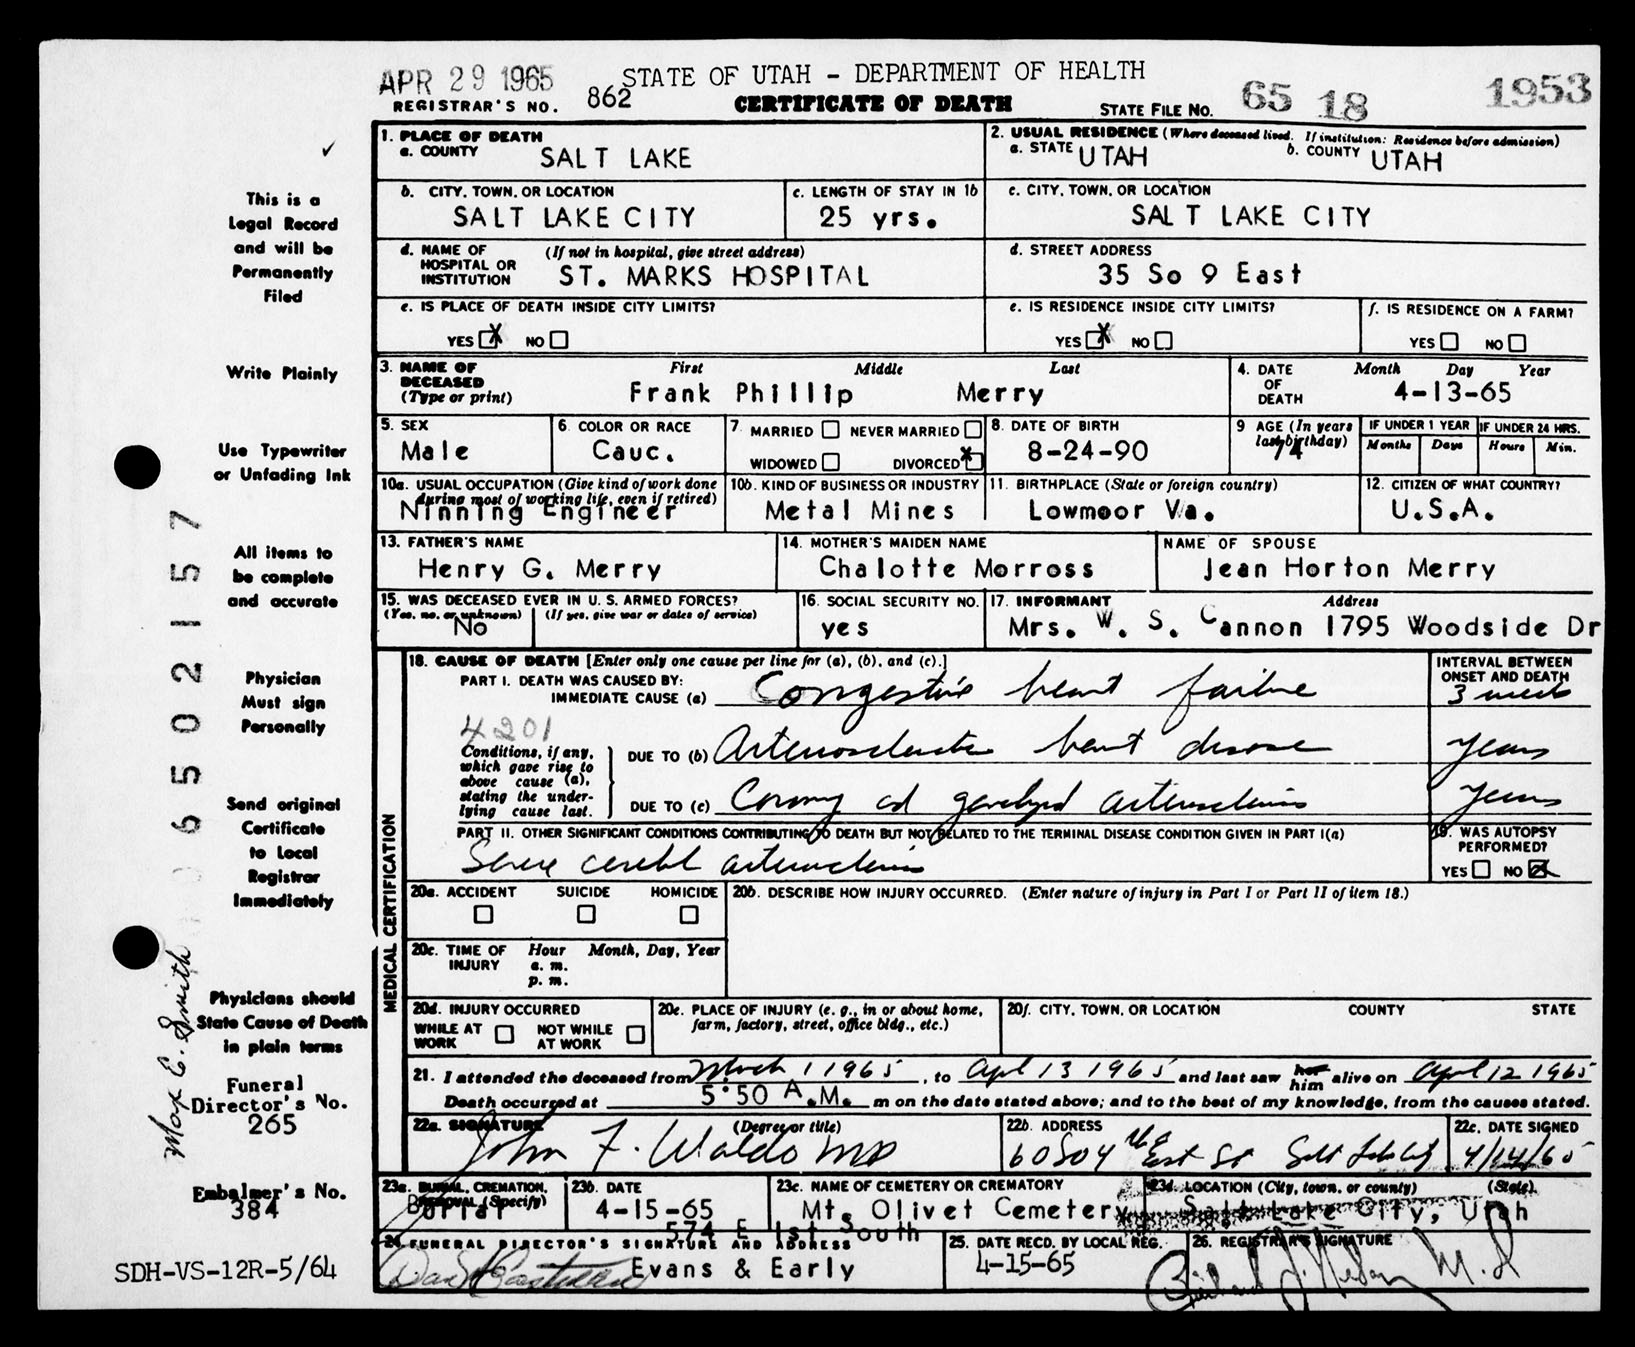 APR 29 1965 STATE OF UTAH - DEPARTMENT OF HEALTH
REGISTRAR'S NO. 862 CERTIFICATE OF DEATH STATE FILE NO. 65 18 1953
1. PLACE OF DEATH
a. COUNTY SALT LAKE
2. USUAL RESIDENCE (Where deceased lived. If institution: Residence before admission)
a. STATE UTAH b. COUNTY UTAH
b. CITY, TOWN, OR LOCATION
SALT LAKE CITY
c. LENGTH OF STAY IN 1b
25 yrs.
c. CITY, TOWN, OR LOCATION
SALT LAKE CITY
d. NAME OF HOSPITAL OR INSTITUTION (If not in hospital, give street address)
ST. MARKS HOSPITAL
d. STREET ADDRESS
35 So 9 East
e. IS PLACE OF DEATH INSIDE CITY LIMITS?
YES X NO
e. IS RESIDENCE INSIDE CITY LIMITS?
YES X NO
f. IS RESIDENCE ON A FARM?
YES NO
3. NAME OF DECEASED (Type or print) First Middle Last
Frank Phillip Merry
4. DATE OF DEATH Month Day Year
4-13-65
5. SEX
Male
6. COLOR OR RACE
Cauc.
7 MARRIED NEVER MARRIED
WIDOWED DIVORCED X
8. DATE OF BIRTH
8-24-90
9 AGE (In years last birthday)
74
IF UNDER 1 YEAR
Months Days
IF UNDER 24 HRS.
Hours Min.
10a. USUAL OCCUPATION (Give kind of work done during most of working life, even if retired)
Ninning Engineer
10b. KIND OF BUSINESS OR INDUSTRY
Metal Mines
11. BIRTHPLACE (State or foreign country)
Lowmoor Va.
12. CITIZEN OF WHAT COUNTRY?
U.S.A.
13. FATHER'S NAME
Henry G. Merry
14. MOTHER'S MAIDEN NAME
Chalotte Morross
NAME OF SPOUSE
Jean Horton Merry
15. WAS DECEASED EVER IN U. S. ARMED FORCES?
(Yes, no, or unknown) (If yes, give war or dates of service)
No
16. SOCIAL SECURITY NO.
yes
17. INFORMANT Address
Mrs. W. S. Cannon 1795 Woodside Dr
MEDICAL CERTIFICATION
18. CAUSE OF DEATH [Enter only one cause per line for (a), (b), and (c).]
PART I. DEATH WAS CAUSED BY:
IMMEDIATE CAUSE (a) Congestive heart failure
INTERVAL BETWEEN ONSET AND DEATH
3 weeks
4201
Conditions, if any, which gave rise to above cause (a), stating the underlying cause last.
DUE TO (b) Arteriosclerotic heart disease years
DUE TO (c) Coronary and generalized arteriosclerosis years
PART II. OTHER SIGNIFICANT CONDITIONS CONTRIBUTING TO DEATH BUT NOT RELATED TO THE TERMINAL DISEASE CONDITION GIVEN IN PART I(a)
Severe cerebral arteriosclerosis
19. WAS AUTOPSY PERFORMED?
YES NO X
20a. ACCIDENT SUICIDE HOMICIDE
20b. DESCRIBE HOW INJURY OCCURRED. (Enter nature of injury in Part I or Part II of item 18.)
20c. TIME OF INJURY Hour Month, Day, Year
a. m.
p. m.
20d. INJURY OCCURRED
WHILE AT WORK NOT WHILE AT WORK
20e. PLACE OF INJURY (e. g., in or about home, farm, factory, street, office bldg., etc.)
20f. CITY, TOWN, OR LOCATION COUNTY STATE
21. I attended the deceased from March 1 1965, to April 13 1965 and last saw her him alive on April 12 1965
Death occurred at 5:50 A.M. m on the date stated above; and to the best of my knowledge, from the causes stated.
22a. SIGNATURE (Degree or title)
John F. Waldo MD
22b. ADDRESS
60 So 4th East St Salt Lake City
22c. DATE SIGNED
4/14/65
23a. BURIAL, CREMATION, REMOVAL (Specify)
Burial
23b. DATE
4-15-65
23c. NAME OF CEMETERY OR CREMATORY
Mt. Olivet Cemetery
23d. LOCATION (City, town, or county) (State)
Salt Lake City, Utah
574 E 1st South
24. FUNERAL DIRECTOR'S SIGNATURE AND ADDRESS
Evans & Early
25. DATE RECD. BY LOCAL REG.
4-15-65
26. REGISTRAR'S SIGNATURE
M.D
This is a
Legal Record
and will be
Permanently
Filed
Write Plainly
Use Typewriter
or Unfading Ink
All items to
be complete
and accurate
Physician
Must sign
Personally
Send original
Certificate
to Local
Registrar
Immediately
Physicians should
State Cause of Death
in plain terms
Funeral
Director's No.
265
Embalmer's No.
384
SDH-VS-12R-5/64
06502157
Max E. Smith